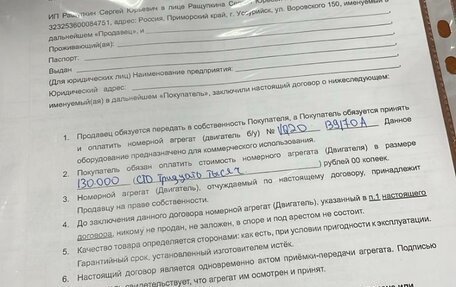 ИП Ращупкин Сергей Юрьевич в лице Ращупкина Сергея
323253600084751, адрес: Россия, Приморский край, г. Уссурийск, ул. Воровского 150, именуемый в
дальнейшем «Продавец», и
Проживающий(ая):
Паспорт:
Выдан
(Для юридических лиц) Наименование предприятия:
Юридический адрес:
именуемый(ая) в дальнейшем «Покупатель», заключили настоящий договор о нижеследующем:
1. Продавец обязуется передать в собственность Покупателя, а Покупатель обязуется принять
и оплатить номерной агрегат (двигатель б/у) № 1G20 Данное
оборудование предназначено для коммерческого использования.
2. Покупатель обязан оплатить стоимость номерного агрегата (Двигателя) в размере
130.000 (Сто тридцать тысяч) рублей 00 копеек.
3. Номерной агрегат (Двигатель), отчуждаемый по настоящему договору, принадлежит
Продавцу на праве собственности.
4. До заключения данного договора номерной агрегат (Двигатель), указанный в п.1 настоящего
договора, никому не продан, не заложен, в споре и под арестом не состоит.
5. Качество товара определяется сторонами: как есть, при условии пригодности к эксплуатации.
Гарантийный срок, установленный изготовителем истёк.
6. Настоящий договор является одновременно актом приёмки-передачи агрегата. Подписью
свидетельствует, что агрегат им осмотрен и принят.